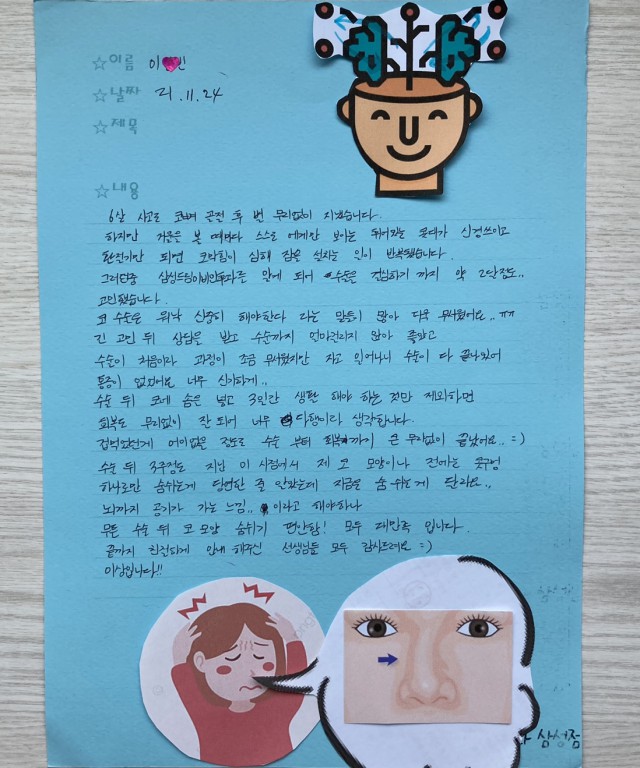 ☆이름 이 민
☆날짜 21.11.24
☆제목
☆내용
6살 사고로 코뼈 골절 후 별 무리없이 지냈습니다.
하지만 거울을 볼 때마다 스스로 에게만 보이는 휘어있는 콧대가 신경쓰이고
환절기만 되면 코막힘이 심해 잠을 설치는 일이 반복됐습니다.
그러던중 삼성드림이비인후과를 알게 되어 수술을 결심하기 까지 약 2달정도..
고민했습니다.
코 수술은 워낙 신중히 해야한다 라는 말들이 많아 더욱 무서웠어요..ㅠㅠ
긴 고민 뒤 상담을 받고 수술까지 얼마걸리지 않아 좋았고
수술이 처음이라 과정이 조금 무서웠지만 자고 일어나니 수술이 다 끝나있어
통증이 없었어요 너무 신기하게..
수술 뒤 코에 솜을 넣고 3일간 생활 해야 하는 것만 제외하면
회복도 무리없이 잘 되어 너무 다행이라 생각합니다.
겁먹었던게 어이없을 정도로 수술 부터 회복까지 큰 무리없이 끝났어요..=)
수술 뒤 3주정도 지난 이 시점에서 제 코 모양이나 전에는 콧구멍
하나로만 숨쉬는게 당연한 줄 알았는데 지금은 숨 쉬는게 달라요..
뇌까지 공기가 가는 느낌.. 이라고 해야하나
무튼 수술 뒤 코 모양 숨쉬기 편안함! 모두 대만족 입니다.
끝까지 친절하게 안내 해주신 선생님들 모두 감사드려요 =)
이상입니다!!
삼성점